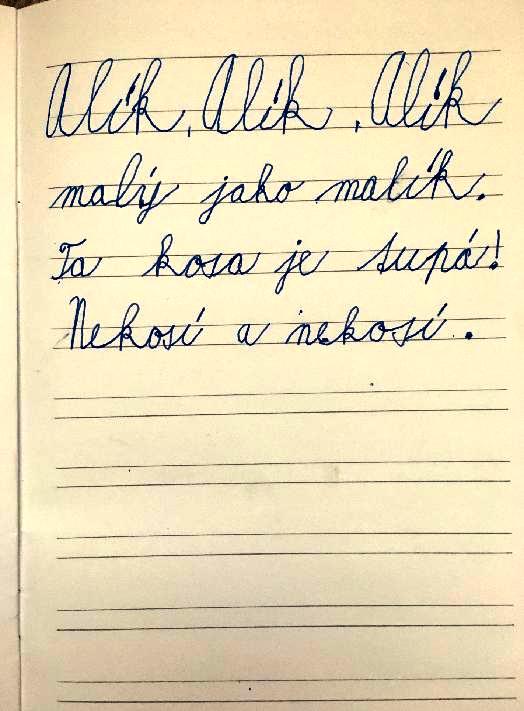 Alík, Alík, Alík
malý jako malík.
Ta kosa je tupá!
Nekosí a nekosí.